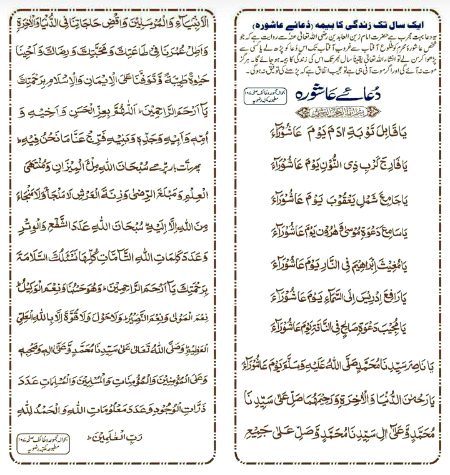 ایک سال تک زندگی کا بیمہ (دعائے عاشورہ)
دعائے عاشورہ
يَا قَابِلَ تَوْبَةِ اٰدَمَ يَوْمَ عَاشُوْرَآءَ
يَا فَارِجَ كَرْبِ ذِى النُّوْنِ يَوْمَ عَاشُوْرَآءَ
يَا جَامِعَ شَمْلِ يَعْقُوْبَ يَوْمَ عَاشُوْرَآءَ
يَا سَامِعَ دَعْوَةِ مُوْسٰى وَهٰرُوْنَ يَوْمَ عَاشُوْرَآءَ
يَا مُغِيْثَ اِبْرَاهِيْمَ فِى النَّارِ يَوْمَ عَاشُوْرَآءَ
يَا رَافِعَ اِدْرِيْسَ اِلَى السَّمَآءِ يَوْمَ عَاشُوْرَآءَ
يَا مُجِيْبَ دَعْوَةِ صَالِحٍ فِى النَّاقَةِ يَوْمَ عَاشُوْرَآءَ
يَا نَاصِرَ سَيِّدِنَا مُحَمَّدٍ صَلَّى اللهُ عَلَيْهِ وَسَلَّمَ يَوْمَ عَاشُوْرَآءَ
يَا رَحْمٰنَ الدُّنْيَا وَالْاٰخِرَةِ وَرَحِيْمَهُمَا صَلِّ عَلٰى سَيِّدِنَا
مُحَمَّدٍ وَّعَلٰى اٰلِ سَيِّدِنَا مُحَمَّدٍ وَّصَلِّ عَلٰى جَمِيْعِ
الْاَنْبِيَآءِ وَالْمُرْسَلِيْنَ وَاقْضِ حَاجَاتِنَا فِى الدُّنْيَا وَالْاٰخِرَةِ
وَاَطِلْ عُمُرَنَا فِىْ طَاعَتِكَ وَمَحَبَّتِكَ وَرِضَاكَ وَاَحْيِنَا
حَيٰوةً طَيِّبَةً وَّتَوَفَّنَا عَلَى الْاِيْمَانِ وَالْاِسْلَامِ بِرَحْمَتِكَ
يَا اَرْحَمَ الرَّاحِمِيْنَ اَللّٰهُمَّ بِعِزِّ الْحَسَنِ وَاَخِيْهِ وَ
اُمِّهٖ وَاَبِيْهِ وَجَدِّهٖ وَبَنِيْهِ فَرِّجْ عَنَّا مَا نَحْنُ فِيْهِ
پھر سات بار پڑھے سُبْحَانَ اللهِ مِلْءَ الْمِيْزَانِ وَمُنْتَهَى
الْعِلْمِ وَمَبْلَغَ الرِّضٰى وَزِنَةَ الْعَرْشِ لَا مَلْجَاَ وَلَا مَنْجَاَ
مِنَ اللهِ اِلَّا اِلَيْهِ سُبْحَانَ اللهِ عَدَدَ الشَّفْعِ وَالْوِتْرِ
وَعَدَدَ كَلِمَاتِ اللهِ التَّآمَّاتِ كُلِّهَا نَسْئَلُكَ السَّلَامَةَ
بِرَحْمَتِكَ يَا اَرْحَمَ الرَّاحِمِيْنَ وَهُوَ حَسْبُنَا وَنِعْمَ الْوَكِيْلُ
نِعْمَ الْمَوْلٰى وَنِعْمَ النَّصِيْرُ وَلَا حَوْلَ وَلَا قُوَّةَ اِلَّا بِاللهِ الْعَلِىِّ
الْعَظِيْمِ وَصَلَّى اللهُ تَعَالٰى عَلٰى سَيِّدِنَا مُحَمَّدٍ وَّعَلٰى اٰلِهٖ وَصَحْبِهٖ
وَعَلَى الْمُؤْمِنِيْنَ وَالْمُؤْمِنَاتِ وَالْمُسْلِمِيْنَ وَالْمُسْلِمَاتِ عَدَدَ
ذَرَّاتِ الْوُجُوْدِ وَعَدَدَ مَعْلُوْمَاتِ اللهِ وَالْحَمْدُ لِلّٰهِ
رَبِّ الْعٰلَمِيْنَ